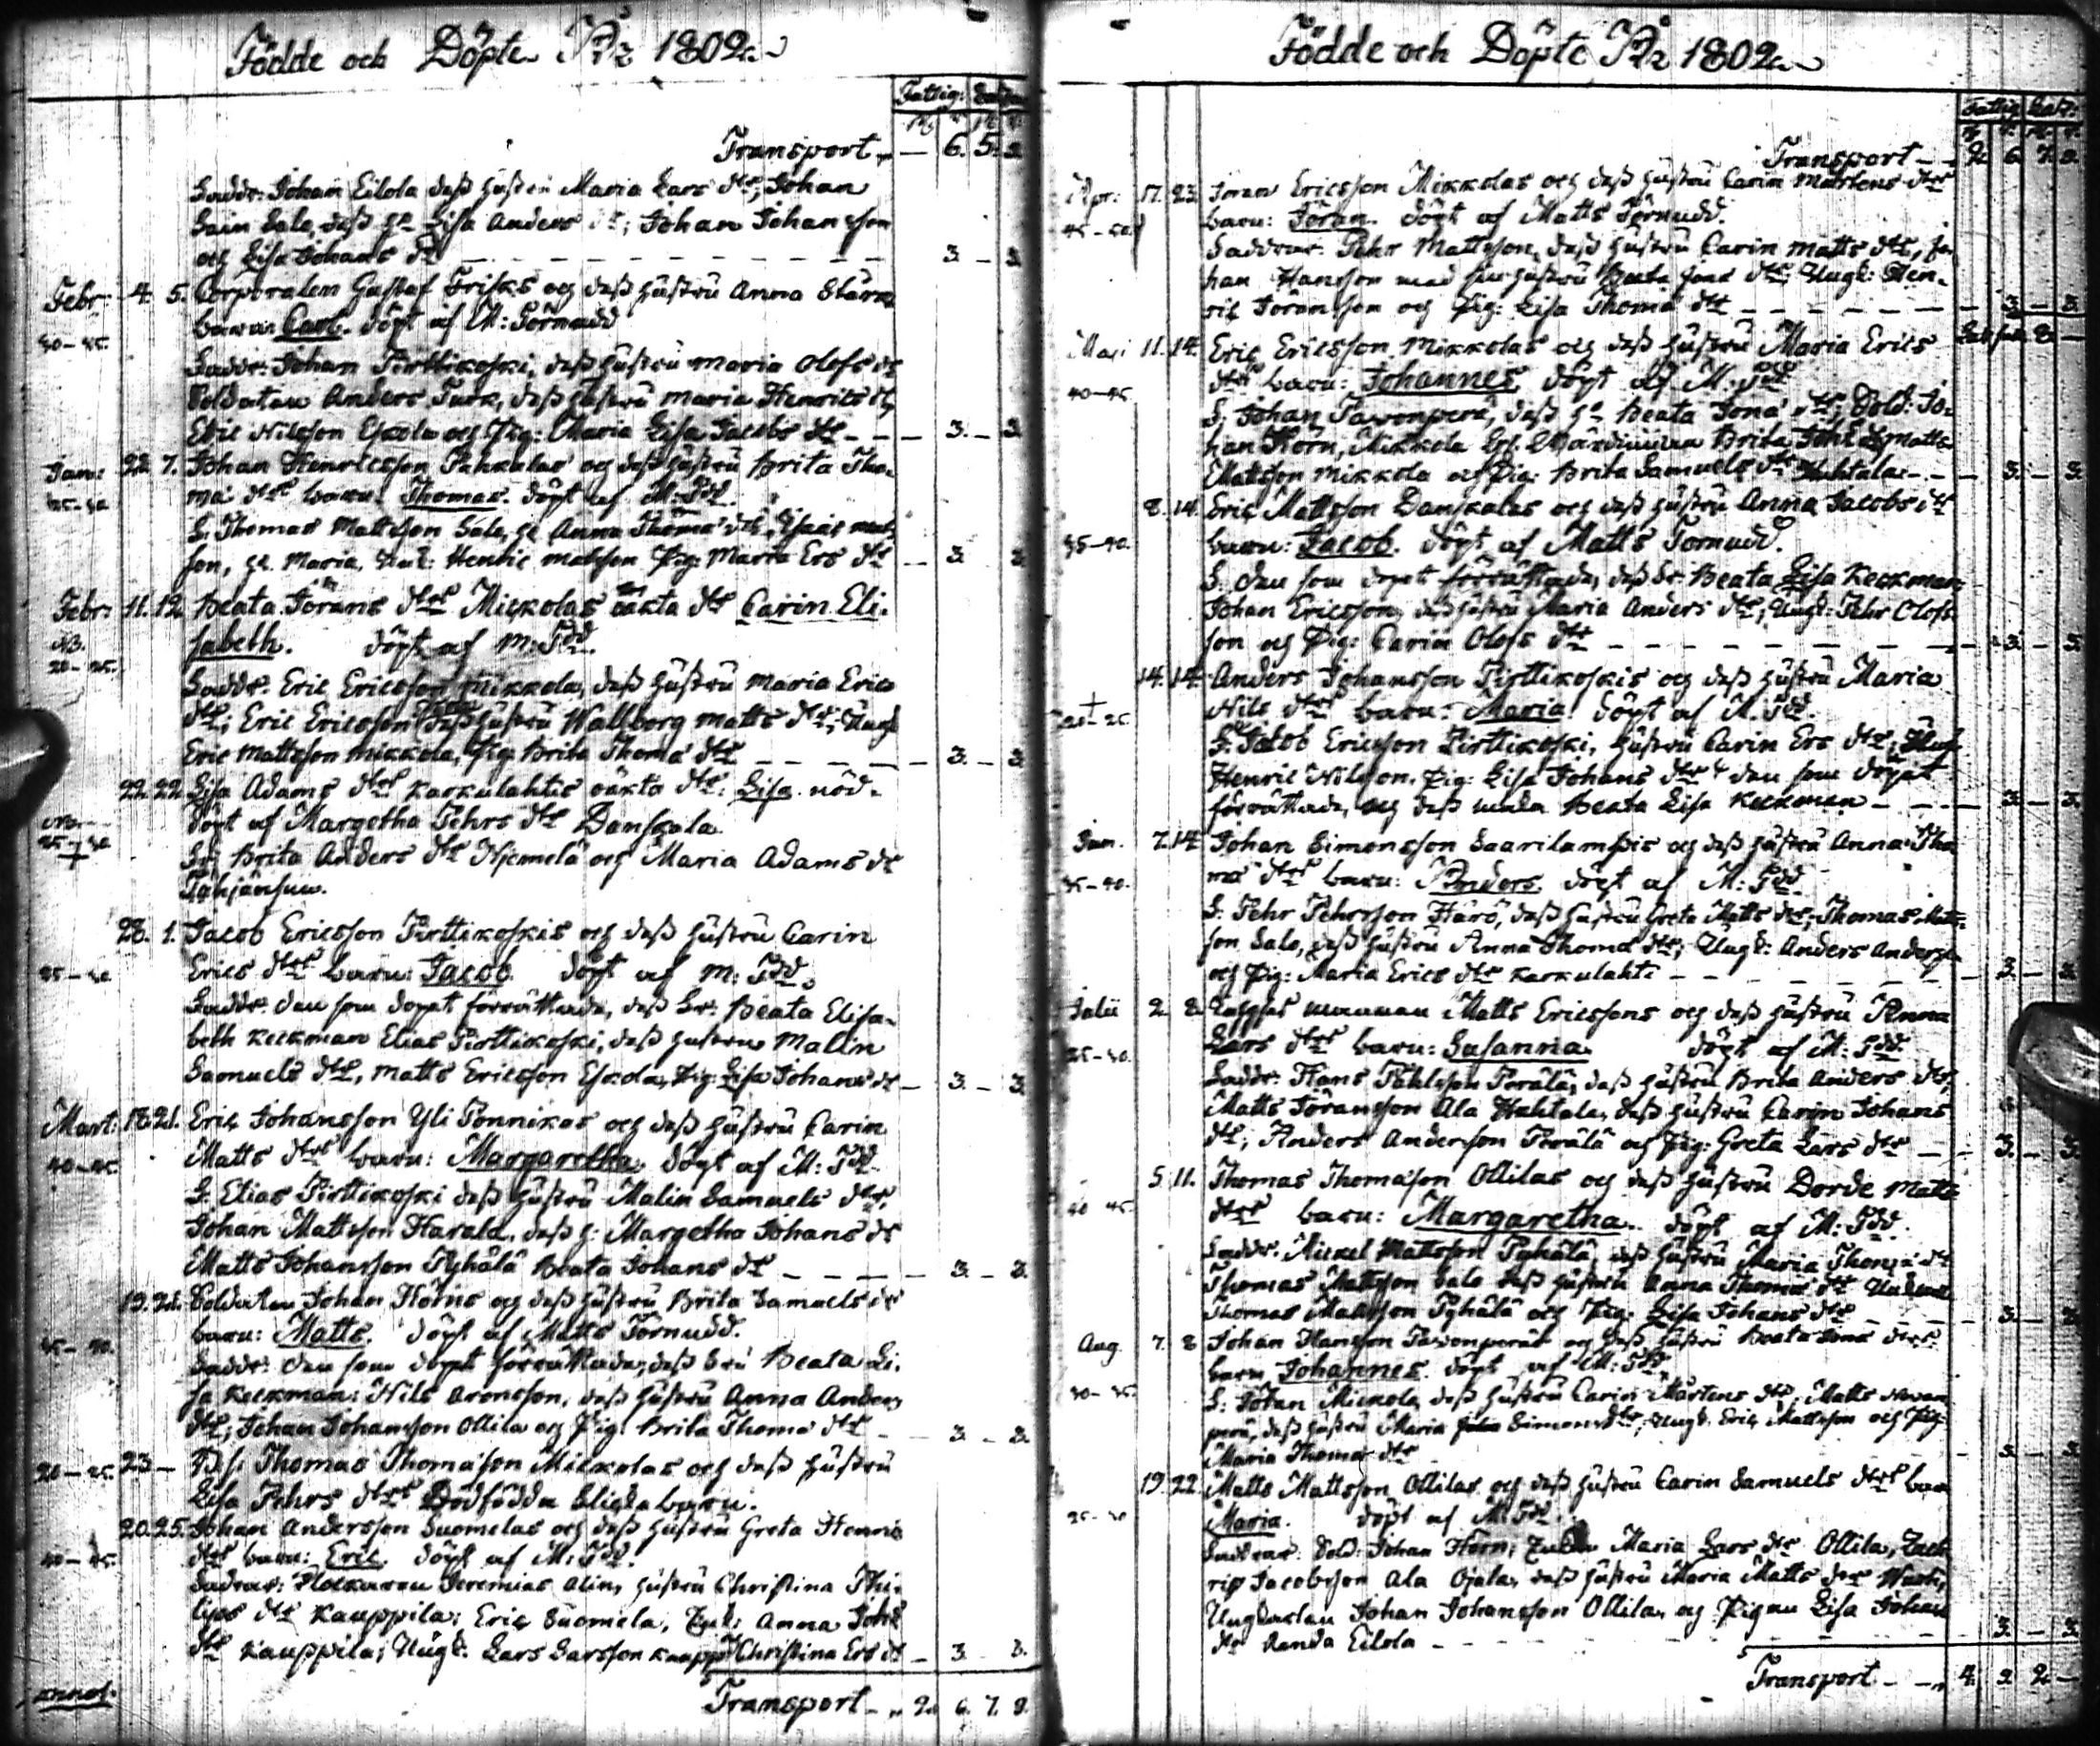 Födde och Döpte År 1802.
Fattig:
Transport – 6. 5. 2
Fadd: Johan Eilola dess hustru Maria Lars dtr, Johan
Salo, dess h. Lisa Anders dr; Johan Johansson
och Lisa Johans dr – 3. – 3
Febr: 4. 5. Corporalen Gustaf Frisks och dess hustru Anna Stark
30–35. barn: Carl. döpt af M: Törnudd
Fadd: Johan Pirttikoski, dess hustru Maria Olofs dr
Soldaten Anders Turk, dess hustru Maria Henrics dr,
Eric Nilsson Eskola och Pig: Maria Lisa Jacobs dr – 3. – 3
Jan: 22. 7. Johan Henricsson Pahkalas och dess hustru Brita Tho-
25–30 mæ dtrs barn: Thomas. döpt af M: Tdd.
F. Thomas Mattsson Salo, h. Anna Thomæ dtr, Esaias matts
son, h. Maria, Henric matsson Pig: Maria Ers dr – 3. 3
Febr: 11. 12. Beata Jörans dtrs Mickolas oäkta dtr Carin Eli-
NB. sabeth. döpt af M: Tdd.
20–25. Fadd: Eric Ericsson Mikkola, dess hustru Maria Erics
dtr; Eric Ericsson dess hustru Wallborg Matts dtr; Ungk
Eric Mattsson Mikkola, Pig. Brita Thomæ dtr – 3. – 3
22. 22. Lisa Adams dtrs Karkulahtis oäkta dtr: Lisa. nöd-
döpt af Margetha Pehrs dtr Danskala.
25–30 Brita Anders dtr Njemelä och Maria Adams dr
+
28. 1. Jacob Ericsson Pirttikoskis och dess hustru Carin
25–30 Erics dtrs barn: Jacob. döpt af M: Tdd.
Fadd: den som dopet förrättade, dess Fru Beata Elisa-
beth Keckman Elias Pirttikoski, dess hustru Malin
Samuels dtr, Matts Ericsson Eskola, Pig: Lisa Johans dr – 3. – 3.
Mart: 18. 21. Eric Johansson Yli Ponnikas och dess hustru Carin
40–45. Matts dtrs barn: Margaretha. döpt af M: Tdd.
F: Elias Pirttikoski dess hustru Malin Samuels dtr,
Johan Mattsson Harala, dess h: Margetha Johans dr
Matts Johansson Pyhälä Beata Johans dr – 3. – 3.
19. 21. Soldaten Johan Horns och dess hustru Brita Samuels dr
barn: Matts. döpt af Matts Törnudd.
Fadd: den som dopet förrättade, dess Fru Beata Li-
sa Keckman: Nils Aronsson, dess hustru Anna Anders
dtr; Johan Johansson Ollila och Pig: Brita Thomæ dtr – 3. – 3.
20–25. 23 – Thomas Thomasson Mickolas och dess hustru
Lisa Pehrs dtrs Dödfödda barn.
20. 25. Johan Andersson Suomelas och dess hustru Greta Henric
40–45. dtrs barn: Eric. döpt af M: Tdd.
Faddrar: Klockaren Jeremias Alin, hustru Christina Phi-
lips dtr Kauppila; Eric Suomela, Anna Johs
dtr Kauppila; Ungk: Lars Larsson Kauppi Christina Ers dr – 3. 3.
Transport – 2. 6. 7. 8.
Födde och Döpte År 1802.
Fattig
Transport – 2. 6. 7. 8.
Apr: 17. 23. Jöran Ericsson Mikkolas och dess hustru Carin Mårtens dtrs
barn: Jöran. döpt af Matts Törnudd.
Faddrar: Pehr Mattsson, dess hustru Carin Matts dtr, Jo-
han Hansson med sin hustru Beata Jona dtr Ungk: Hen-
ric Jöransson och Pig: Lisa Thomæ dtr – 3. – 3.
Maji 11. 14. Eric Ericsson Mikkolas och dess hustru Maria Erics
40–45 dtrs barn: Johannes. döpt af M: Tdd
F: Johan Pavonperä, dess h. Beata Jonæ dtr; Sold: Jo-
han Horn, Mikkola Brita Matts
Mattsson Mikkola och Pig: Brita Samuels dtr Huhtala – 3. – 3.
8. 14. Eric Mattsson Danskalas och dess hustru Anna Jacobs dtrs
35–40. barn: Jacob. döpt af Matts Törnudd.
F: den som dopet förrättade, dess Fr. Beata Lisa Keckman
Johan Ericsson, dess hustru Maria Anders dtr, Ungk: Pehr Olofs-
son och Pig: Carin Olofs dtr – 3. – 3.
14. 14. Anders Johansson Pirttikoskis och dess hustru Maria
+
20–25. Nils dtrs barn: Maria. döpt af M. Tdd.
F: Jacob Ericsson Pirttikoski, hustru Carin Ers dtr;
Henric Nilsson. Pig: Lisa Johans dtr & den som dopet
förrättade, och dess maka Beata Lisa Keckman – 3. – 3.
Jun. 7. 14. Johan Simonsson Saarilampis och dess hustru Anna Tho
35–40. mæ dtrs barn: Anders. döpt af M: Tdd.
F: Pehr Pehrsson Härö, dess hustru Greta Matts dtr, Thomas Matts-
son Salo, dess hustru Anna Thomæ dtr; Ungk: Anders Andersson
och Pig: Maria Erics dtr Karkulahti – 3. – 3.
Julii 2. 2. Matts Ericssons och dess hustru Anna
25–30. Lars dtrs barn: Susanna. döpt af M: Tdd
Fadd: Hans Påhlsson Perälä, dess hustru Brita Anders dtr,
Matts Jöransson Ala Huhtala, dess hustru Carin Johans
dtr; Anders Andersson Perälä och Pig: Greta Lars dtr – 3. – 3.
5. 11. Thomas Thomasson Ollilas och dess hustru Dorde Matts
40 45. dtrs barn: Margaretha. döpt af M: Tdd.
Fadd: Mickel Mattsson Pyhälä, dess hustru Maria Thomæ dtr
Thomas Mattsson Salo dess hustru Anna Thomæ dtr
Thomas Mattsson Pyhälä och Pig: Lisa Johans dtr – 3. – 3.
Aug. 7. 8 Johan Hansson Pavonperäs och dess hustru Beata Jonæ dtrs
30–35. barn Johannes. döpt af M: Tdd.
F: Jöran Mickola, dess hustru Carin Mårtens dtr, Matts
perä, dess hustru Maria Simons dtr, Ungk. Eric Mattsson och Pig:
Maria Thomæ dtr – 3. – 3.
19. 22. Matts Mattsson Ollilas och dess hustru Carin Samuels dtrs barn
25–30 Maria. döpt af M: Tdd.
Faddrar: Sold: Johan Horn; Maria Lars dtr Ollila, Zach
ris Jacobsson Ala Ojala, dess hustru Maria Matts dtr
Ungkarlen Johan Johansson Ollila, och Pigan Lisa Johans
dtr Randa Eilola – 3. – 3.
Transport – 4. 2 2 –